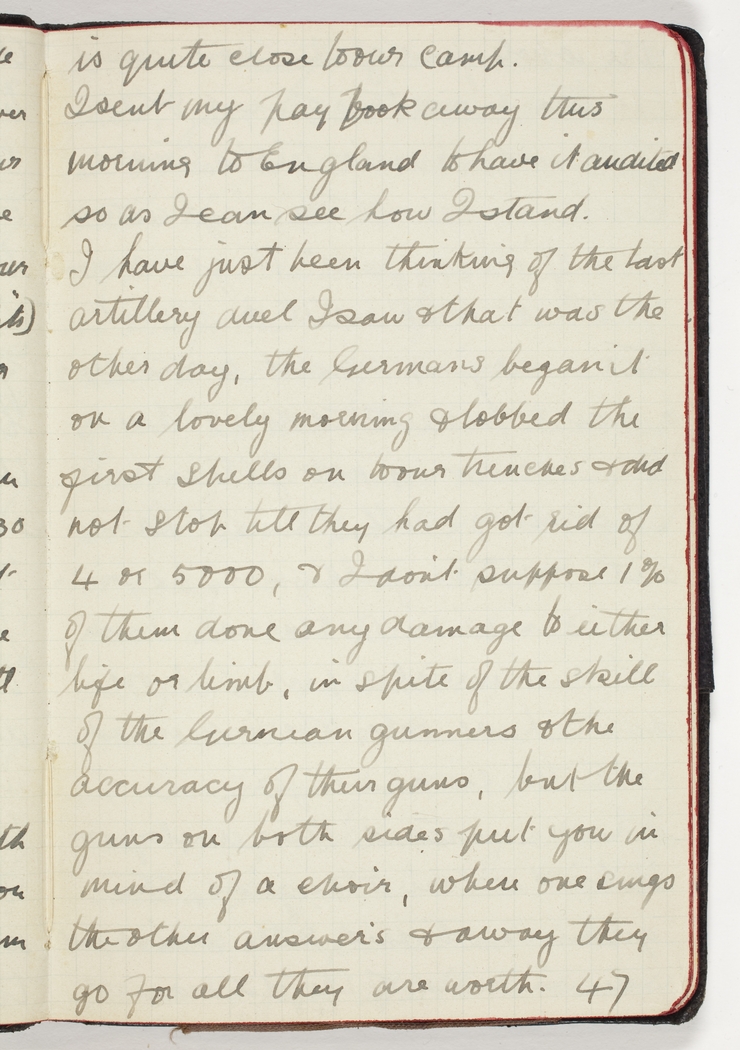 is quite close to our camp.
I sent my pay book away this
morning to England to have it audited
so as I can see how I stand.
I have just been thinking of the last
artillery duel I saw & that was the
other day, the Germans began it
on a lovely morning & lobbed the
first shells on to our trenches & did
not stop till they had got rid of
4 or 5000, & I don't suppose 1%
of them done any damage to either
life or limb, in spite of the skill
of the German gunners & the
accuracy of their guns, but the
guns on both sides put you in
mind of a choir, where one sings
the other answers & away they
go for all they are worth. 47